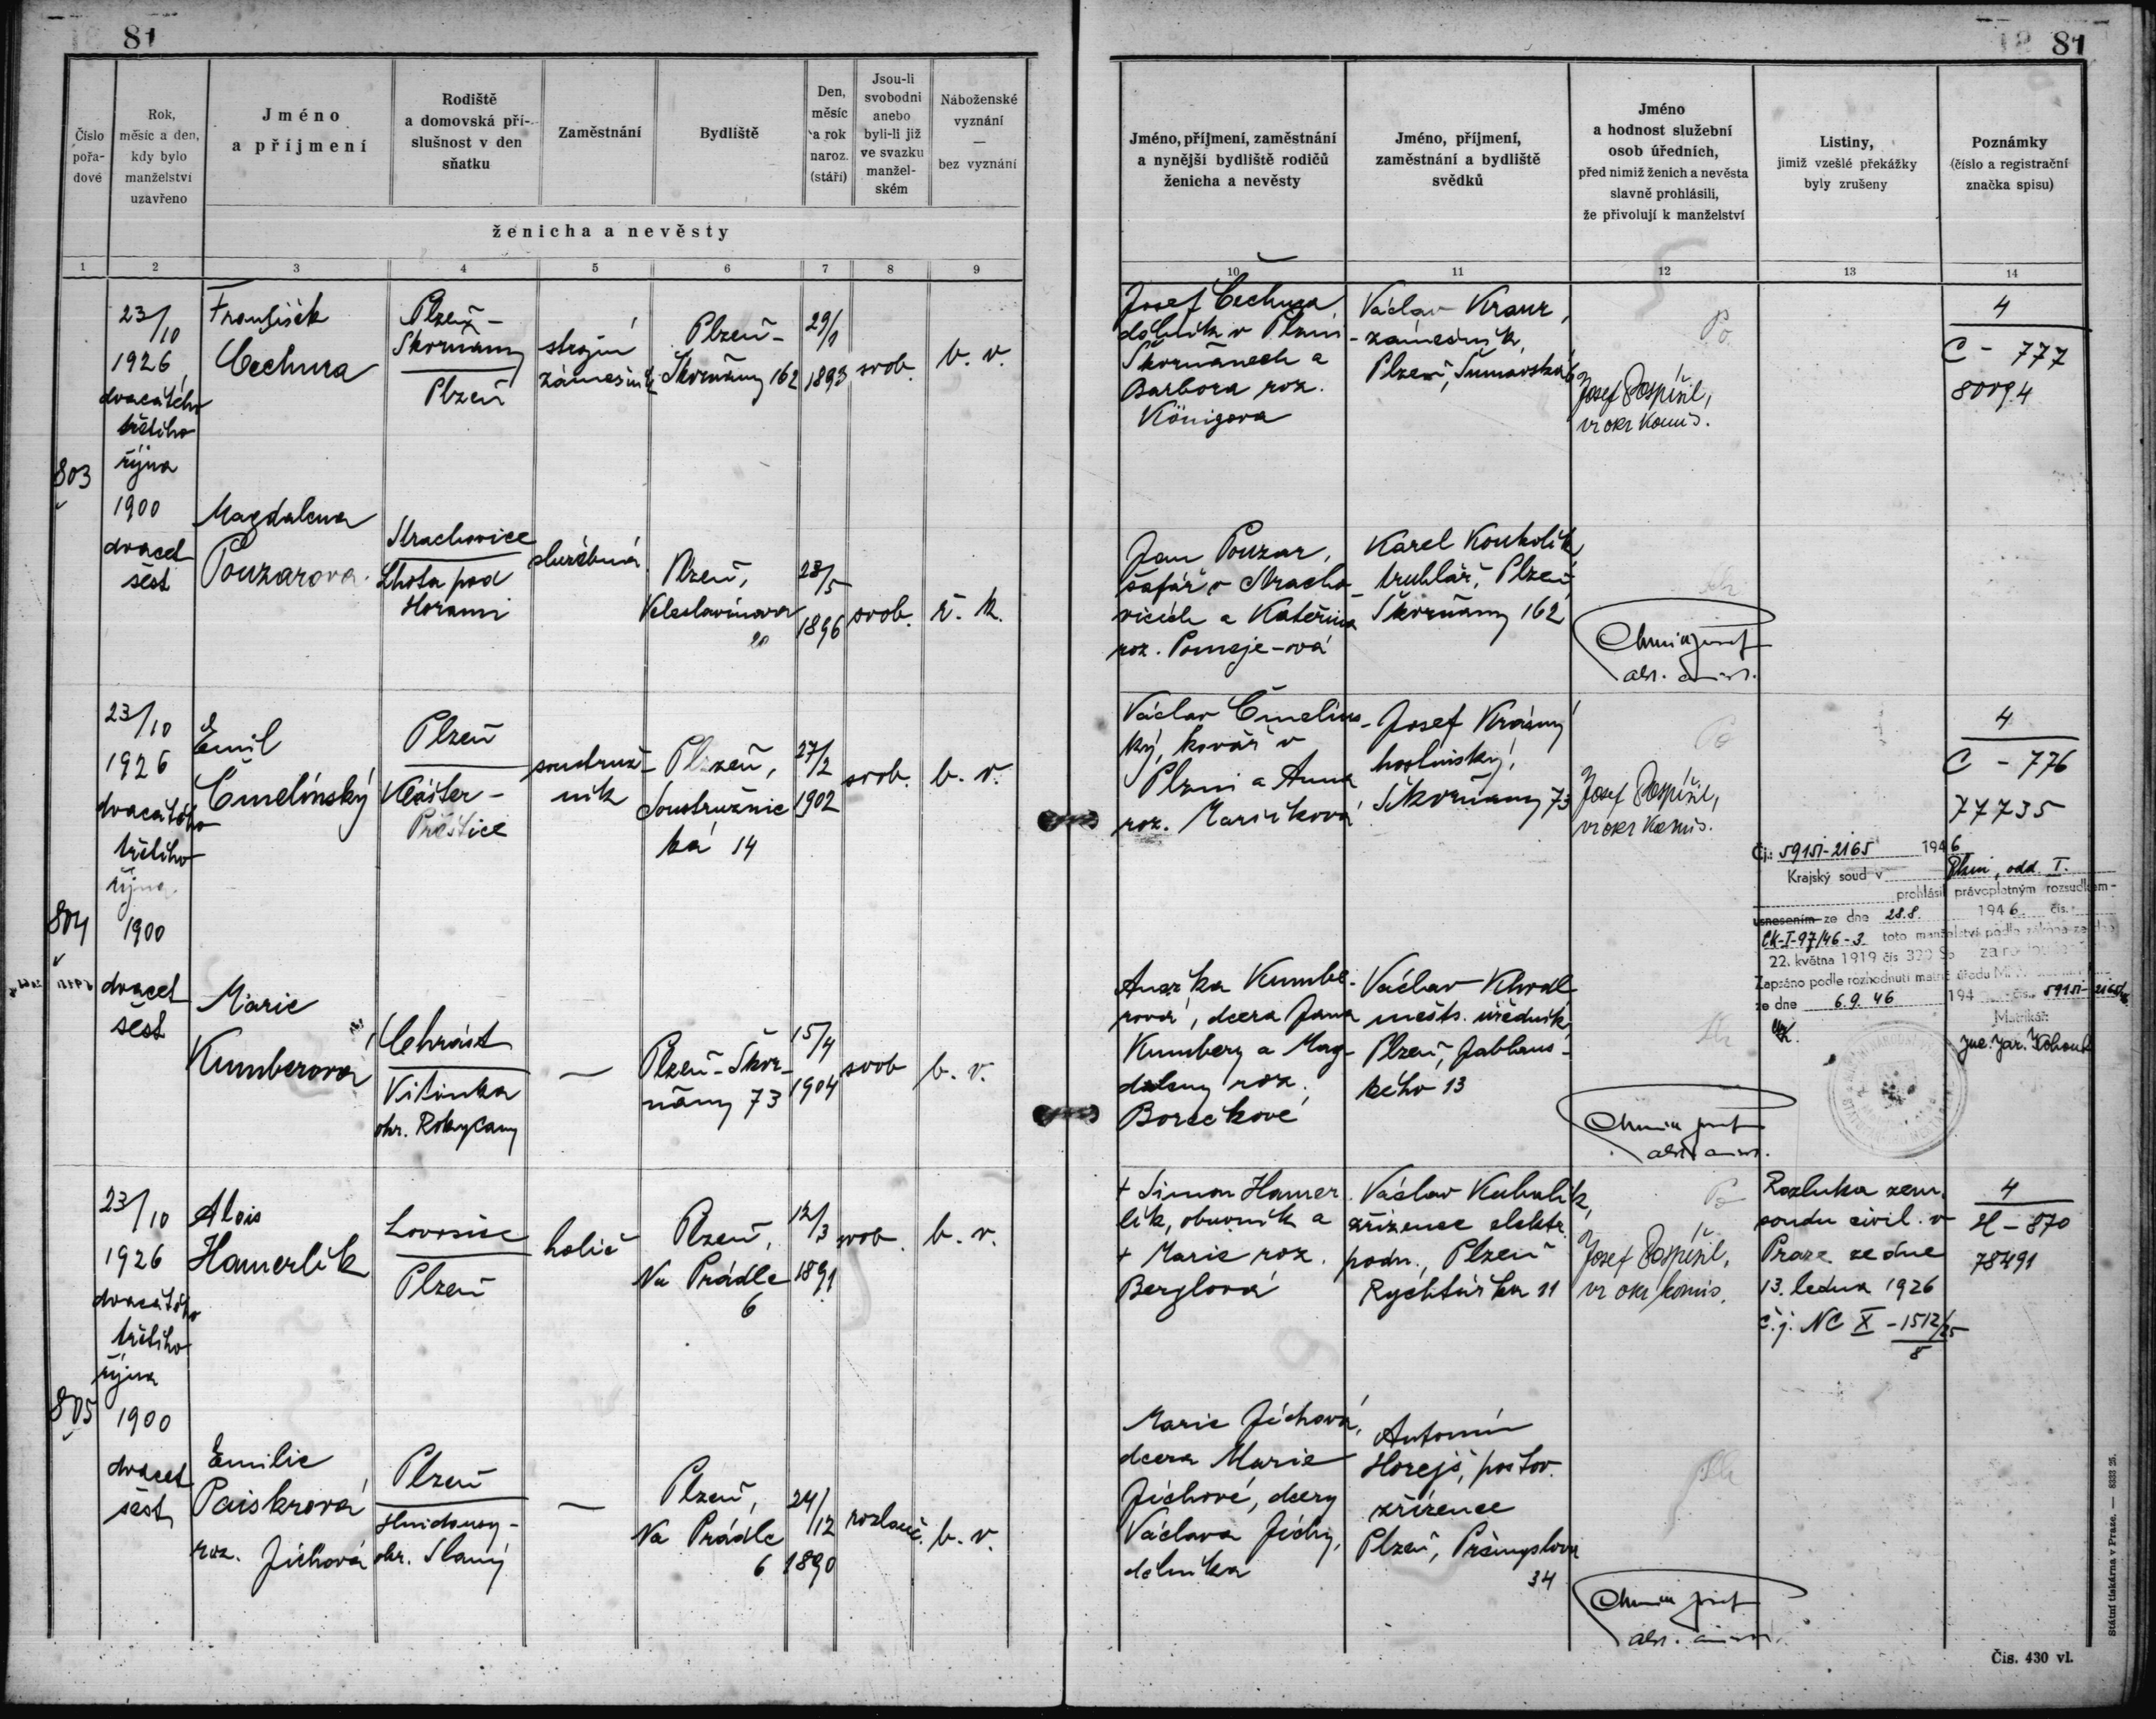 81
81
Číslo pořadové
Rok, měsíc a den, kdy bylo manželství uzavřeno
Jméno a příjmení
Rodiště a domovská příslušnost v den sňatku
Zaměstnání
Bydliště
Den, měsíc a rok naroz. (stáří)
Jsou-li svobodni anebo byli-li již ve svazku manželském
Náboženské vyznání — bez vyznání
ženicha a nevěsty
Jméno, příjmení, zaměstnání a nynější bydliště rodičů ženicha a nevěsty
Jméno, příjmení, zaměstnání a bydliště svědků
Jméno a hodnost služební osob úředních, před nimiž ženich a nevěsta slavně prohlásili, že přivolují k manželství
Listiny, jimiž vzešlé překážky byly zrušeny
Poznámky (číslo a registrační značka spisu)
1 2 3 4 5 6 7 8 9 10 11 12 13 14
803
23/10
1926
dvacátého
třetího
října
1900
dvacet
šest
František
Čechura
Plzeň-
Skvrňany
Plzeň
strojní
zámečník
Plzeň-
Skvrňany 162
29/1
1893
svob.
b. v.
Josef Čechura
dělník v Plzni-
Skvrňanech a
Barbora roz.
Königova
Václav Kraur,
zámečník,
Plzeň, Šumavská 6
Josef Pospíšil,
vr okr komis.
4
C - 777
80094
Magdalena
Pouzarova
Strachovice
Lhota pod
Horami
služebná
Plzeň,
Veleslavínova
20
28/5
1896
svob.
ř. k.
Jan Pouzar,
šafář v Stracho-
vicích a Kateřina
roz. Pomeje-ová
Karel Koukolík
truhlář, Plzeň,
Skvrňany 162
804
23/10
1926
dvacátého
třetího
října
1900
dvacet
šest
Emil
Čmelínský
Plzeň
Klášter-
Přeštice
soustruž-
ník
Plzeň,
Soustružnic
ká 14
27/2
1902
svob.
b. v.
Václav Čmelíns-
ký, kovář v
Plzni a Anna
roz. Maříková
Josef Krásný
hostinský,
Skvrňany 73
Josef Pospíšil,
vr okr komis.
4
C - 776
77735
Čj.: 59151-2165 1946
Krajský soud v Plzni, odd I.
prohlásil právoplatným rozsudkem-
usnesením ze dne 28.8. 1946 čís.
CK-I-97/46-3 toto manželství podle zákona ze dne
22. května 1919 čís 320 Sb za rozloučené
Zapsáno podle rozhodnutí matrič úřadu
ze dne 6.9. 46 194 čís. 59151-2165/46
Matrikář:
Marie
Kumberová
Chrást
Vitinka
okr. Rokycany
—
Plzeň-Skvr-
ňany 73
15/4
1904
svob
b. v.
Anežka Kumbe-
rová, dcera Jana
Kumbery a Mag-
daleny roz.
Borečkové
Václav Khodl
městs. úředník
Plzeň, Jablons-
kého 13
805
23/10
1926
dvacátého
třetího
října
1900
dvacet
šest
Alois
Hamerlík
Lovosice
Plzeň
holič
Plzeň,
Na Prádle
6
12/3
1891
svob.
b. v.
+ Simon Hamer
lík, obuvník a
+ Marie roz.
Berglová
Václav Kubalík,
zřízenec elektr.
podn., Plzeň
Rychtářka 11
Josef Pospíšil,
vr okr komis.
Rozluka zem.
soudu civil. v
Praze ze dne
13. ledna 1926
č. j. NC X - 1512/25
8
4
H - 870
78491
Emilie
Paiskrová
roz. Jíchová
Plzeň
Hnidousy-
okr. Slaný
—
Plzeň,
Na Prádle
6
24/12
1890
rozlouč.
b. v.
Marie Jíchová,
dcera Marie
Jíchové, dcery
Václava Jíchy,
dělníka
Antonín
Horejš, poštov.
zřízenec
Plzeň, Přemyslova
34
Státní tiskárna v Praze. — 8333 26.
Čís. 430 vl.